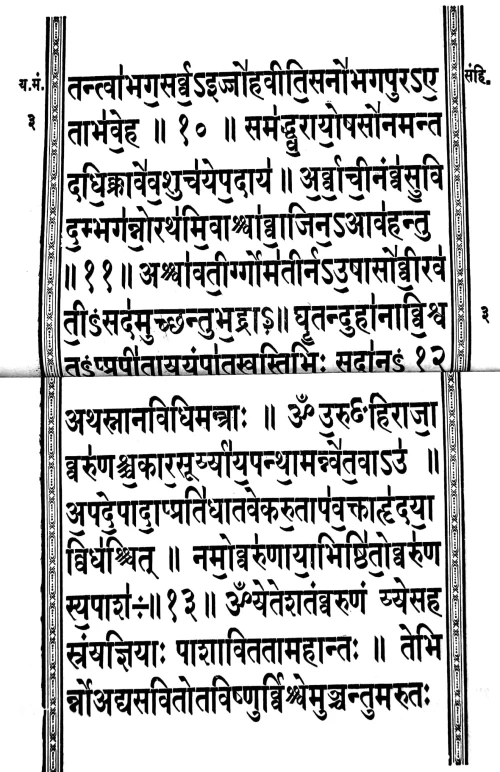 य.मं.
३
संहि.
तन्त्वा॑भग॒सर्व्व॒ऽइज्जो॑हवीति॒सनो॑भगपुरऽए॒
ताभ॑वे॒ह ॥ १० ॥ सम॑द्ध्व॒राया॒ेषसो॑नमन्त
दधि॒क्रावे॑व॒शुच॑ये॒प॒दाय॑ ॥ अ॒र्व्वा॒ची॒नंव्व॑सु॒वि
द॒म्भग॑न्नो॒रथ॑मि॒वाश्श्वा॑व्वा॒जिन॒ऽआव॑हन्तु
॥ ११ ॥ अश्श्वा॑वती॒र्ग्गोम॑तीर्नऽउ॒षासो॑व्वी॒रव॑
ती॒ऽसद॑मुच्छन्तुभ॒द्राऽ॥ घृ॒तन्दुहा॑नाव्वि॒श्व
तऽप्प्रपी॑ताय॒यंपा॑तस्व॒स्तिभिः॒ सदा॑नः १२
३
अथस्नानविधिमन्त्राः ॥ ॐ उ॒रुꣳहिराजा॒
व्वरु॑णश्च॒कार॒सूर्य्या॑य॒पन्था॒मन्न्वे॑त॒वाऽउ॑ ॥
अ॒पदे॒पादा॒प्प्रति॑धातवेकरु॒ताप॑व॒क्ताहृ॑द॒या
व्विध॑श्चित् ॥ नमो॒व्वरु॑णाया॒भिष्ठि॑तो॒व्वरु॑ण
स्य॒पाश॑ः॥ १३ ॥ ॐयेतेशतंव्वरुणं य्येसह
स्रंयज्ञियाः पाशाविततामहान्तः ॥ तेभि
र्न्नोअद्यसवितोतविष्णुर्व्विश्श्वेमुञ्चन्तुमरुतः